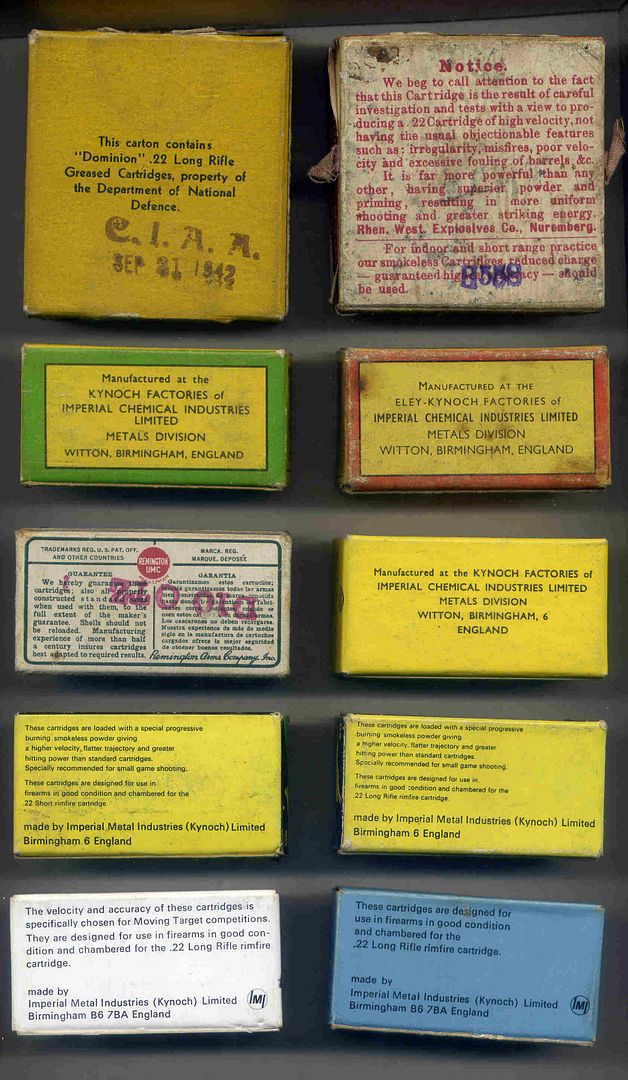 This carton contains
"Dominion" .22 Long Rifle
Greased Cartridges, property of
the Department of National
Defence.
C. I. A. A.
SEP 21 1942
Notice.
We beg to call attention to the fact
that this Cartridge is the result of careful
investigation and tests with a view to pro-
ducing a .22 Cartridge of high velocity, not
having the usual objectionable features
such as: irregularity, misfires, poor velo-
city and excessive fouling of barrels, &c.
It is far more powerful than any
other, having superior powder and
priming, resulting in more uniform
shooting and greater striking energy.
Rhen. West. Explosives Co., Nuremberg.
For indoor and short range practice
our smokeless Cartridges, reduced charge
— guaranteed — should
be used.
Manufactured at the
KYNOCH FACTORIES of
IMPERIAL CHEMICAL INDUSTRIES
LIMITED
METALS DIVISION
WITTON, BIRMINGHAM, ENGLAND
MANUFACTURED AT THE
ELEY-KYNOCH FACTORIES of
IMPERIAL CHEMICAL INDUSTRIES LIMITED
METALS DIVISION
WITTON, BIRMINGHAM, ENGLAND
TRADEMARKS REG. U. S. PAT. OFF.
AND OTHER COUNTRIES
REMINGTON
UMC
MARCA. REG.
MARQUE. DEPOSÉE
GUARANTEE
We hereby guarantee these
cartridges; also all properly
constructed standard
when used with them, to the
full extent of the maker's
guarantee. Shells should not
be reloaded. Manufacturing
experience of more than half
a century insures cartridges
best adapted to required results.
GARANTIA
Garantizamos estos cartuchos;
garantizamos todas las armas
Los cascarones no deben recargarse.
Nuestra experiencia de más de medio
siglo en la manufactura de cartuchos
cargados ofrece la mejor seguridad
de obtener buenos resultados.
Remington Arms Company, Inc.
Manufactured at the KYNOCH FACTORIES of
IMPERIAL CHEMICAL INDUSTRIES LIMITED
METALS DIVISION
WITTON, BIRMINGHAM, 6
ENGLAND
These cartridges are loaded with a special progressive
burning smokeless powder giving
a higher velocity, flatter trajectory and greater
hitting power than standard cartridges.
Specially recommended for small game shooting.
These cartridges are designed for use in
firearms in good condition and chambered for the
.22 Short rimfire cartridge.
made by Imperial Metal Industries (Kynoch) Limited
Birmingham 6 England
These cartridges are loaded with a special progressive
burning smokeless powder giving
a higher velocity, flatter trajectory and greater
hitting power than standard cartridges.
Specially recommended for small game shooting.
These cartridges are designed for use in
firearms in good condition and chambered for the
.22 Long Rifle rimfire cartridge.
made by Imperial Metal Industries (Kynoch) Limited
Birmingham 6 England
The velocity and accuracy of these cartridges is
specifically chosen for Moving Target competitions.
They are designed for use in firearms in good con-
dition and chambered for the .22 Long Rifle rimfire
cartridge.
made by
Imperial Metal Industries (Kynoch) Limited
Birmingham B6 7BA England
IMI
These cartridges are designed for
use in firearms in good condition
and chambered for the
.22 Long Rifle rimfire cartridge.
made by
Imperial Metal Industries (Kynoch) Limited
Birmingham B6 7BA England
IMI